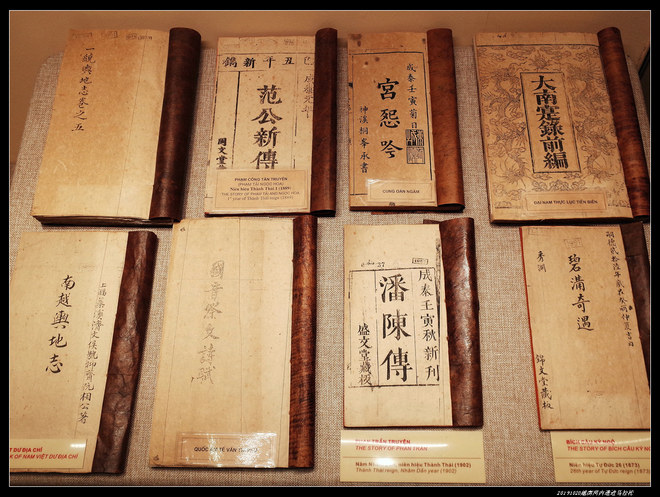 一統輿地志卷之五
己丑千新鐫
成泰元年
范公新傳
國文堂
PHẠM CÔNG TÂN TRUYỆN
(PHẠM TẢI NGỌC HOA)
Niên hiệu Thành Thái 1 (1889)
THE STORY OF PHAM TAI AND NGOC HOA
1st year of Thành Thái reign (1889)
成泰壬寅菊日
宮怨吟
神溪桐峯永書
CUNG OÁN NGÂM
大南寔錄前編
ĐẠI NAM THỰC LỤC TIỀN BIÊN
南越輿地志
T DƯ ĐỊA CHÍ
OF NAM VIỆT DƯ ĐỊA CHÍ
國音祭文詩賦
QUỐC ÂM TẾ VĂN THI PHÚ
成泰壬寅秋新刊
潘陳傳
盛文堂藏板
PHAN TRẦN TRUYỆN
THE STORY OF PHAN TRAN
Năm Nhâm Dần niên hiệu Thành Thái (1902)
Thành Thái reign, Nhâm Dần year (1902)
秀淵
碧溝奇遇
歸文堂藏板
BÍCH CÂU KỲ NGỘ
THE STORY OF BICH CAU KY N
Niên hiệu Tự Đức 26 (1873)
26th year of Tự Đức reign (1873)